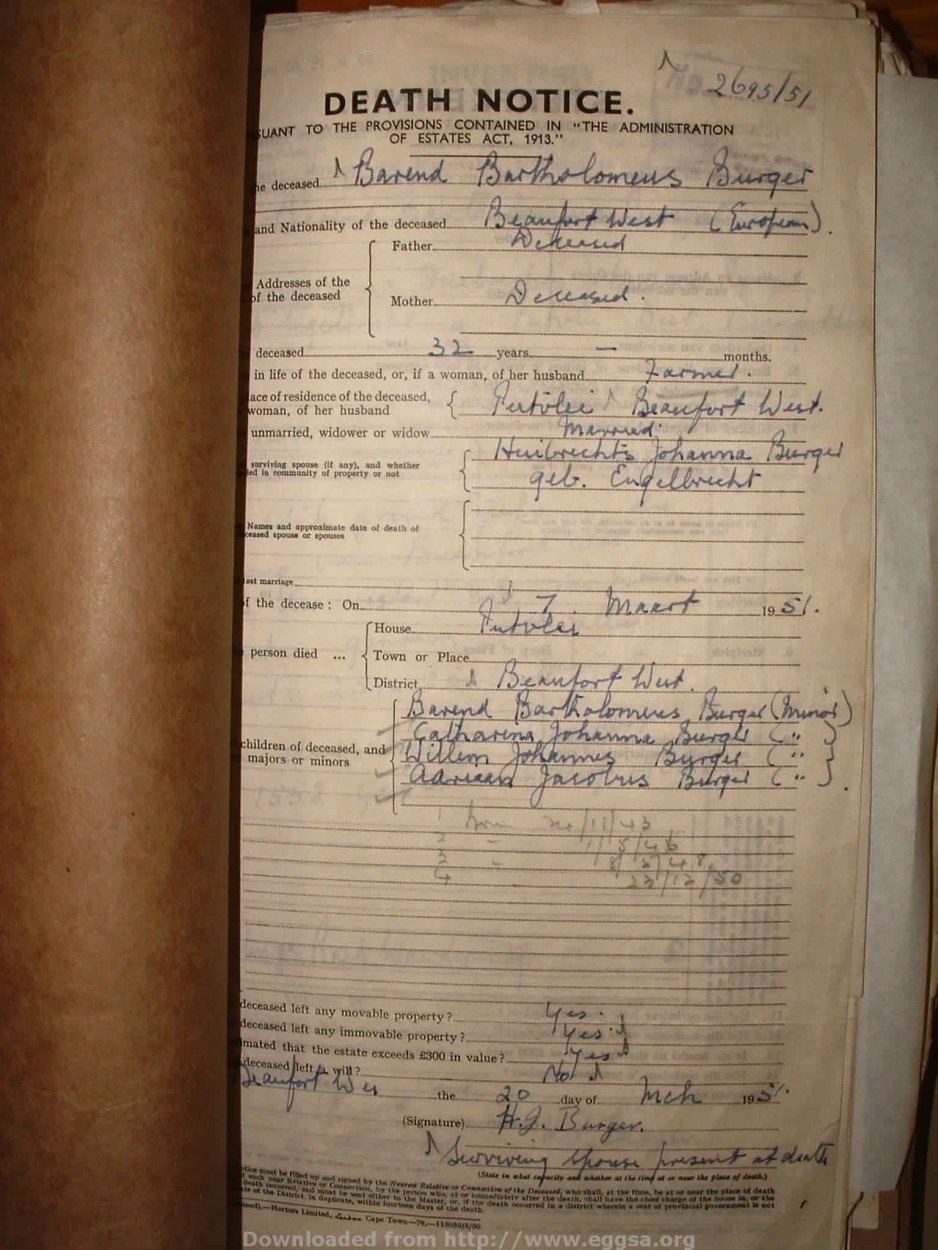 2695/51
DEATH NOTICE.
SUANT TO THE PROVISIONS CONTAINED IN "THE ADMINISTRATION
OF ESTATES ACT, 1913."
he deceased Barend Bartholomeus Burger
and Nationality of the deceased Beaufort West (European).
Father Deceased
Addresses of the
of the deceased
Mother Deceased.
deceased 32 years — months.
in life of the deceased, or, if a woman, of her husband Farmer.
ace of residence of the deceased,
woman, of her husband
Beaufort West.
unmarried, widower or widow Married
surviving spouse (if any), and whether
ed in community of property or not
Huibrechts Johanna Burger
geb. Engelbrecht
Names and approximate date of death of
ceased spouse or spouses
ast marriage
f the decease: On 7. Maart 1951.
House
person died ... Town or Place
District Beaufort West.
children of deceased, and
majors or minors
Barend Bartholomeus Burger (Minor)
Catharina Johanna Burger ( " )
Willem Johannes Burger ( " )
Adriaan Jacobus Burger ( " ).
1 /11/43
2 /46
3 8/
4 23/12/50
deceased left any movable property? Yes.
deceased left any immovable property? Yes.
mated that the estate exceeds £300 in value? Yes
deceased left a will? No
Beaufort Wes the 20 day of Mch 1951.
(Signature) H.J. Burger.
Surviving spouse present at death
(State in what capacity and whether at the time at or near the place of death.)
otice must be filled up and signed by the Nearest Relative or Connection of the Deceased, who shall, at the time, be at or near the place of death
such near Relative or Connection, by the person who, at or immediately after the death, shall have the chief charge of the house in, or the
death occurred, and must be sent either to the Master, or, if the death occurred in a district wherein a seat of provincial government is not
te of the District, in duplicate, within fourteen days of the death.
Hortors Limited, Cape Town
Downloaded from http://www.eggsa.org